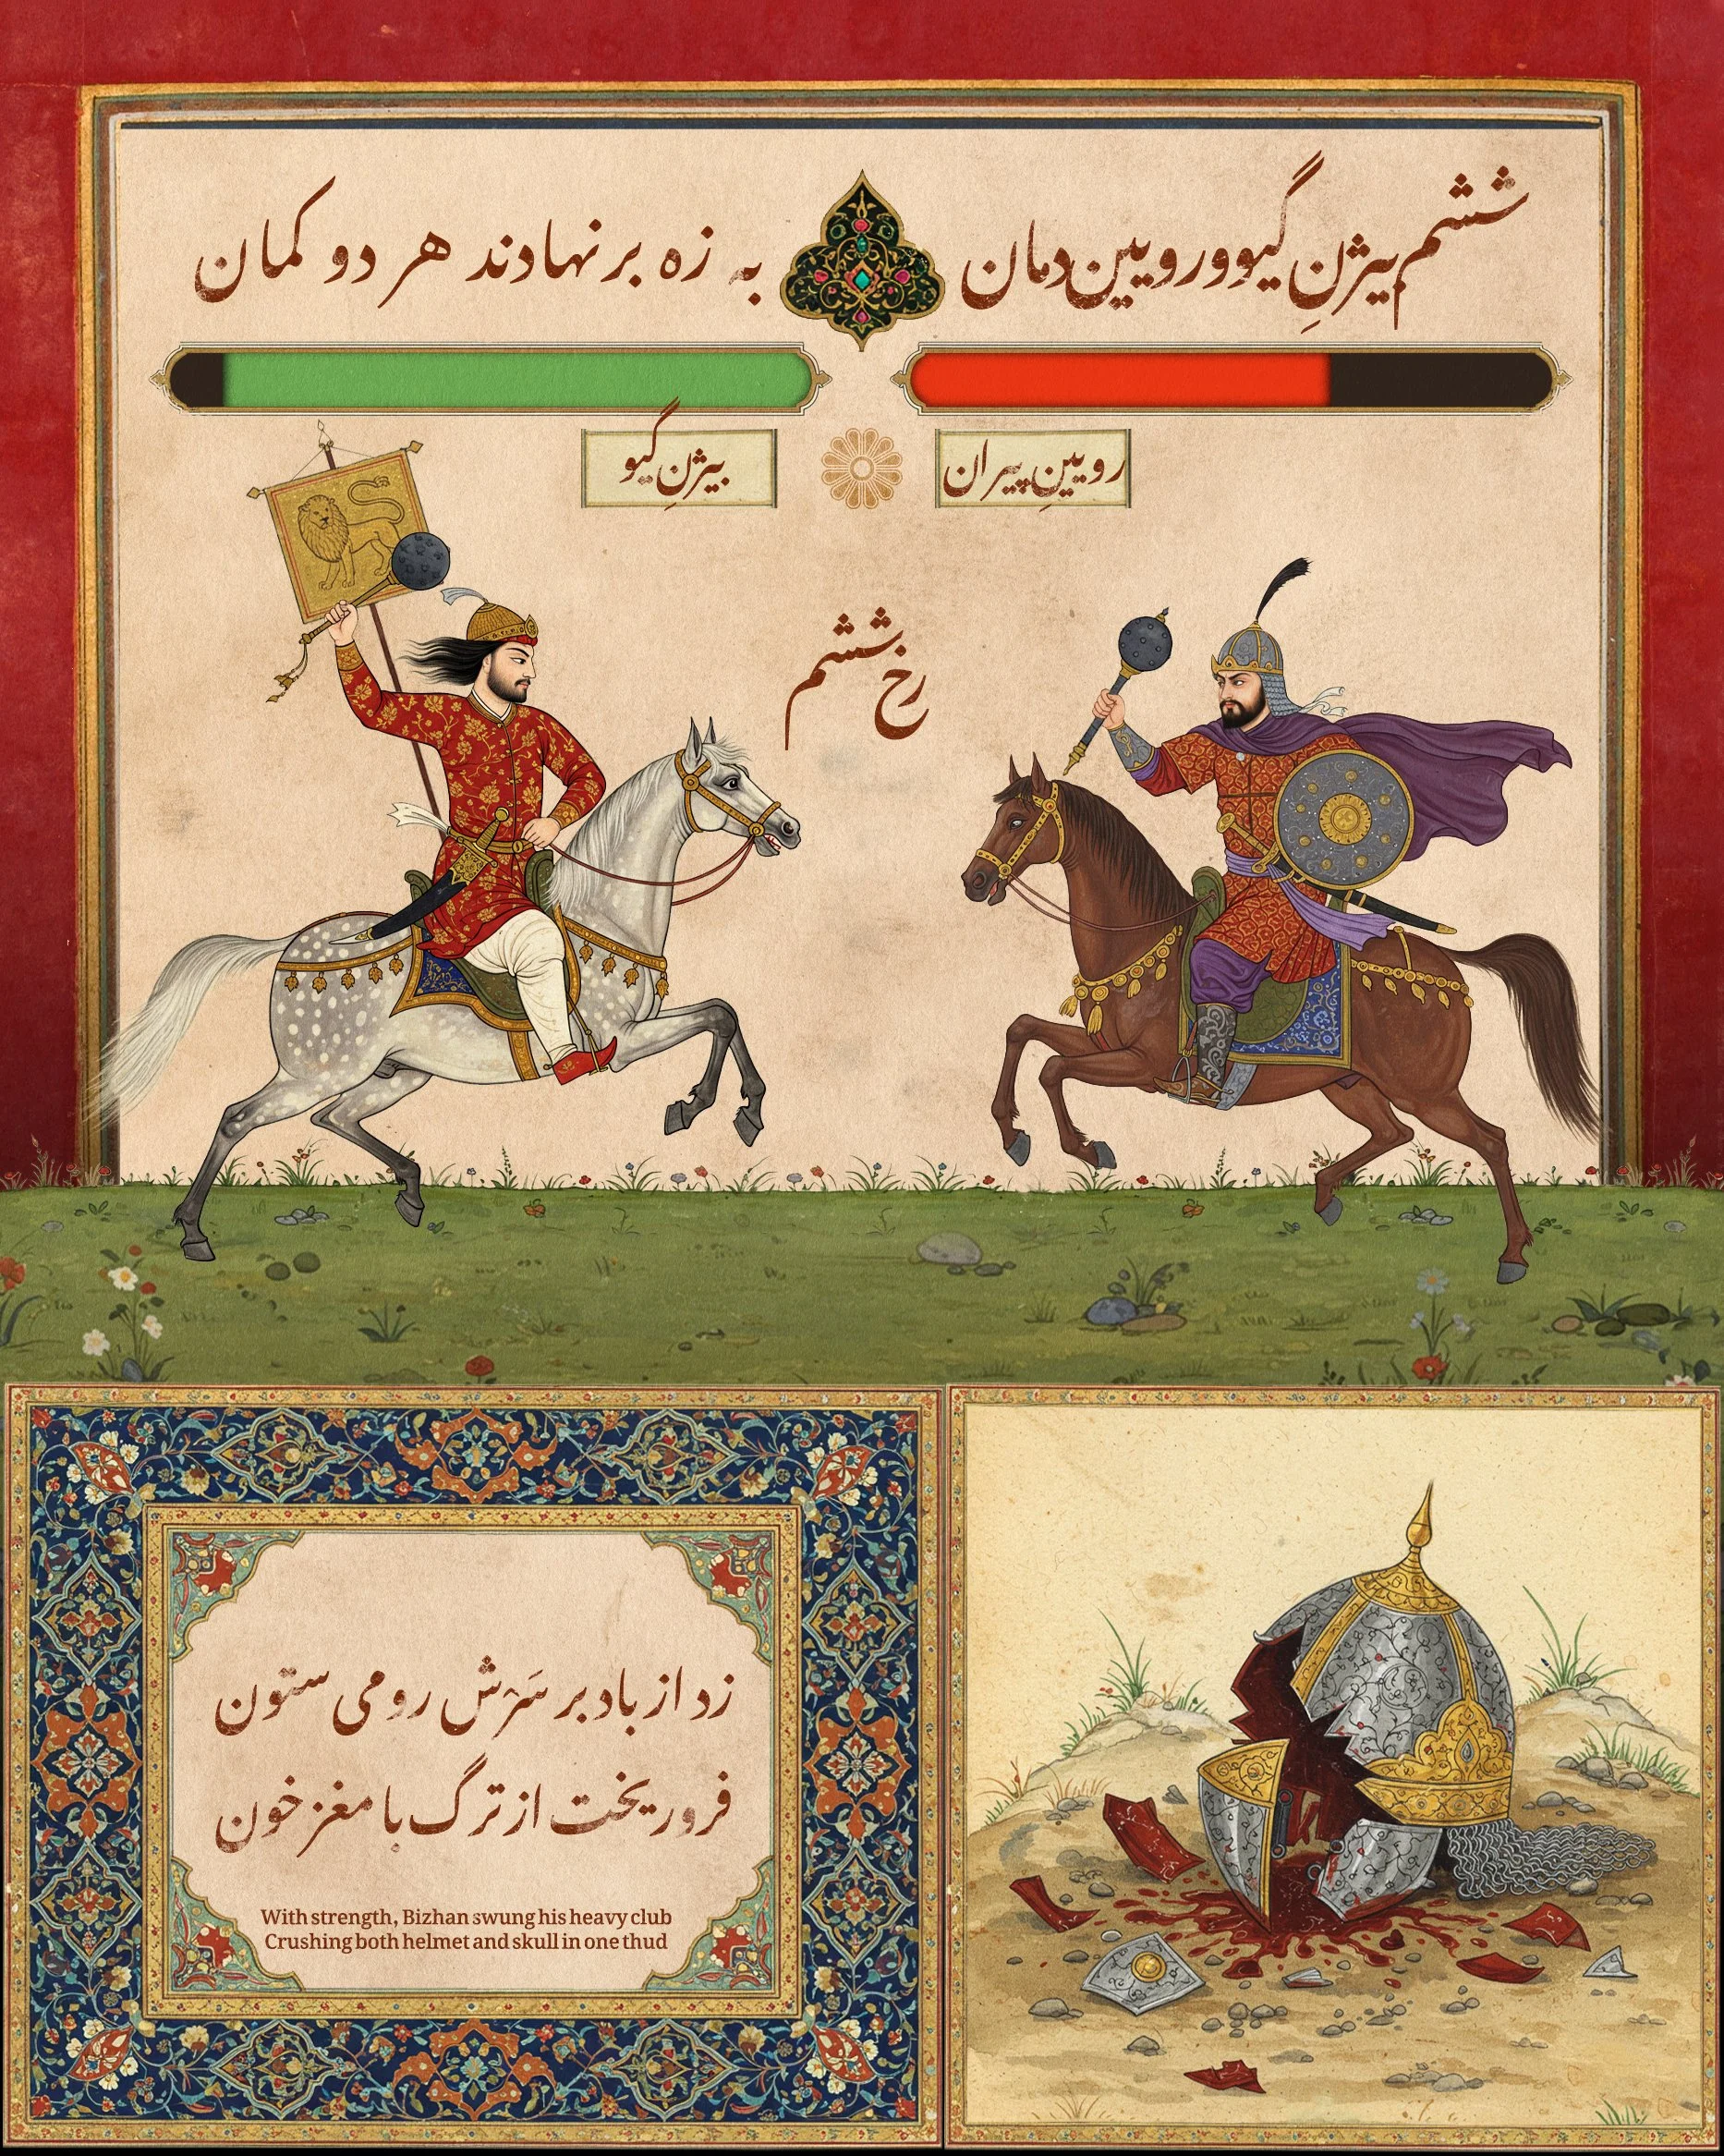 ششم بیژنِ گیو و رویین دمان
به زه بر نهادند هر دو کمان
بیژنِ گیو
رویینِ پیران
رخ ششم
زد از باد بر سَرْش رومی ستون
فرو ریخت از ترگ با مغز خون
With strength, Bizhan swung his heavy club
Crushing both helmet and skull in one thud